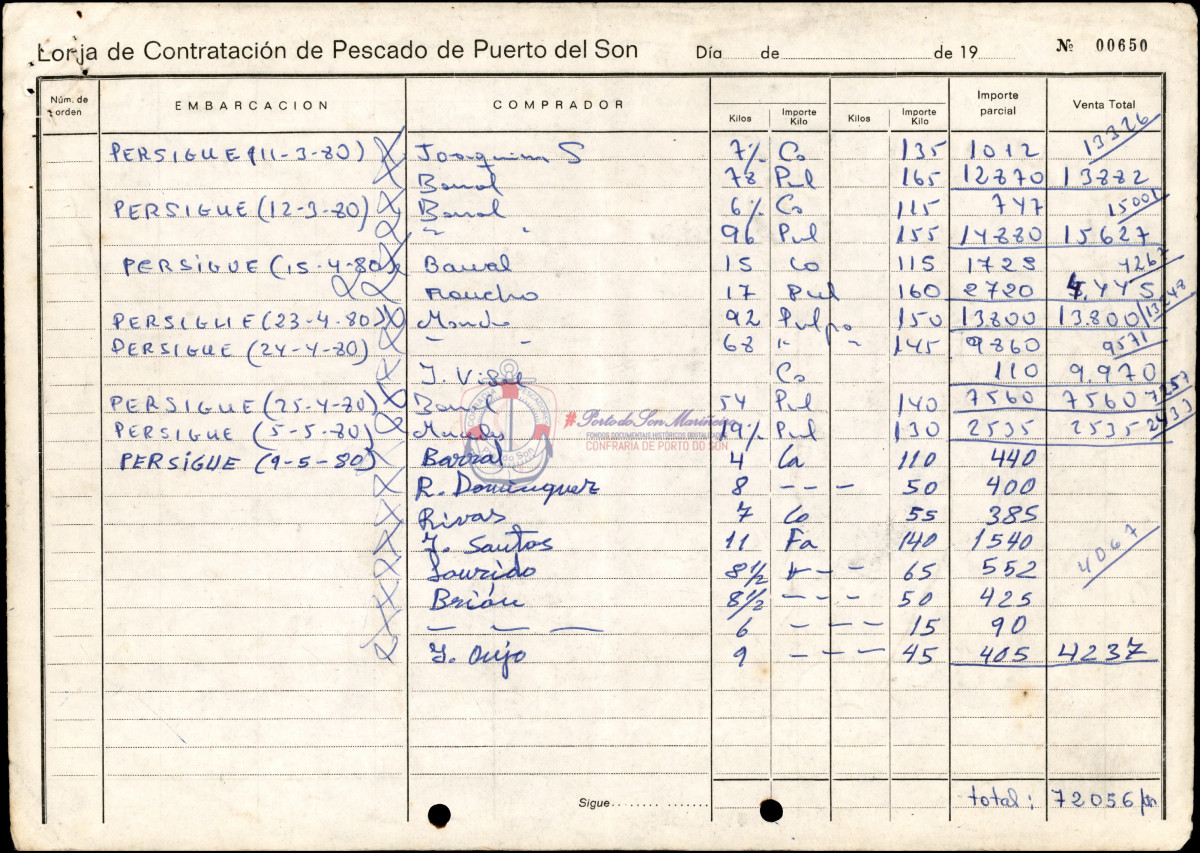 Lonja de Contratación de Pescado de Puerto del Son Día de de 19 Nº 00650
Núm. de orden EMBARCACION COMPRADOR Kilos Importe Kilo Kilos Importe Kilo Importe parcial Venta Total
13326
PERSIGUE (11-3-80) Joaquim S 7½ Co 135 1012
78 Pul 165 12870 13882
PERSIGUE (12-3-80) 6½ Co 115 747 15001
" " 96 Pul 155 14880 15627
PERSIGUE (15-4-80) 15 Co 115 1725 4267
17 Pul 160 2720 4.445
PERSIGUE (23-4-80) 92 Pulpo 150 13.800 13.800 13248
PERSIGUE (24-4-80) " " 68 " " 145 9860 9571
Co 110 9.970
PERSIGUE (25-4-80) 54 Pul 140 7560 7560 7257
PERSIGUE (5-5-80) 19½ Pul 130 2535 2535 2433
PERSIGUE (9-5-80) Barral 4 Co 110 440
R. Dominguez 8 - - - 50 400
Rivas 7 Co 55 385
J. Santos 11 Fa 140 1540
Lourido 8½ - - 65 552 4067
Brión 8½ - - - 50 425
— — — 6 - - - 15 90
9 - - - 45 405 4237
Sigue
total: 72056
COFRADIA PESCADORES
Porto do Son
#Porto do Son Mariñeiro
FONDOS DOCUMENTAIS HISTÓRICOS DIXITALIZADOS
CONFRARIA DE PORTO DO SON